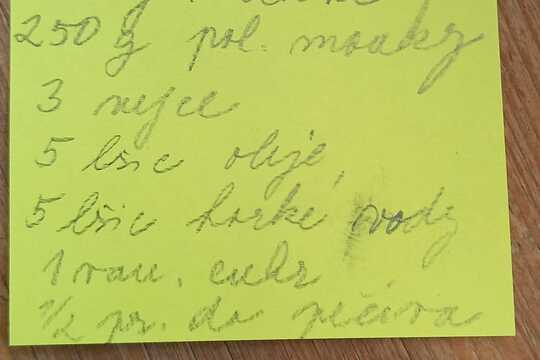 250 g pol. mouky
3 vejce
5 lžic oleje,
5 lžic horké vody
1 van. cukr
1/2 pr. do pečiva